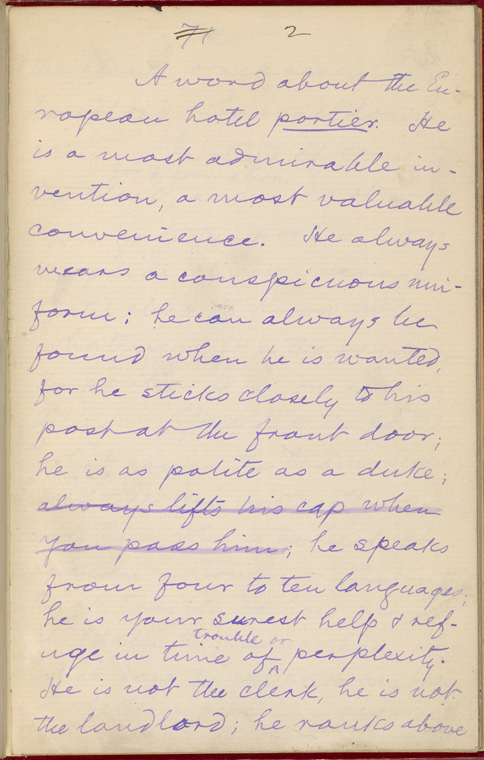 71 2
A word about the Eu-
ropean hotel portier. He
is a most admirable in-
vention, a most valuable
convenience. He always
wears a conspicuous uni-
form; he can always be
found when he is wanted,
for he sticks closely to his
post at the front door;
he is as polite as a duke;
always lifts his cap when
you pass him; he speaks
from four to ten languages;
he is your surest help & ref-
trouble or
uge in time of perplexity.
He is not the clerk, he is not
the landlord; he ranks above